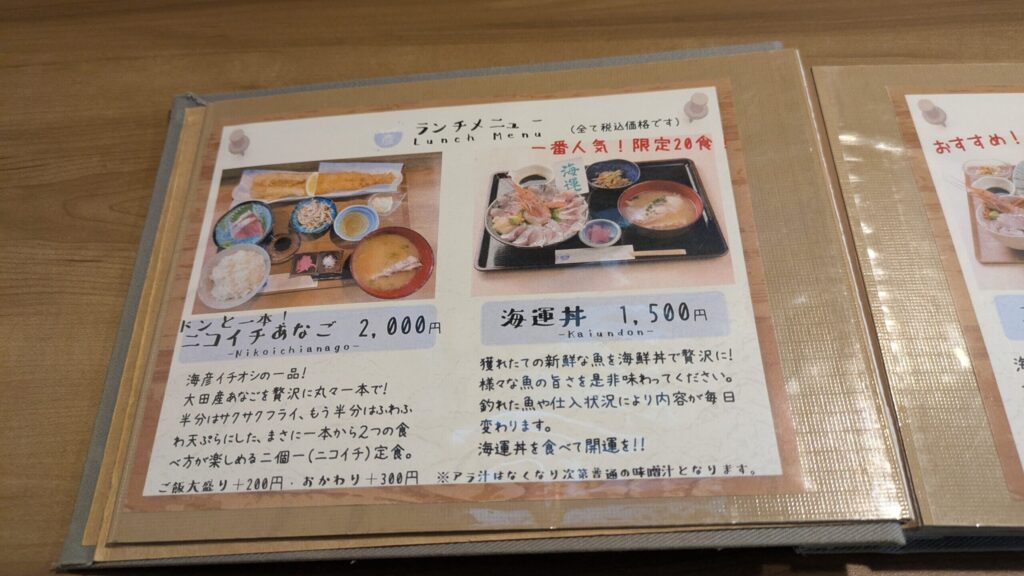 ランチメニュー
Lunch Menu
(全て税込価格です)
一番人気!限定20食!
海運
ドンと一本!
ニコイチあなご 2,000円
-Nikoichianago-
海産イチオシの一品!
大田産あなごを贅沢に丸々一本で!
半分はサクサクフライ、もう半分はふわふ
わ天ぷらにした、まさに一本から2つの食
べ方が楽しめる二個一(ニコイチ)定食。
ご飯大盛り+200円・おかわり+300円
海運丼 1,500円
-Kaiundon-
獲れたての新鮮な魚を海鮮丼で贅沢に!
様々な魚の旨さを是非味わってください。
釣れた魚や仕入状況により内容が毎日
変わります。
海運丼を食べて開運を!!
※アラ汁はなくなり次第普通の味噌汁となります。
おすすめ!